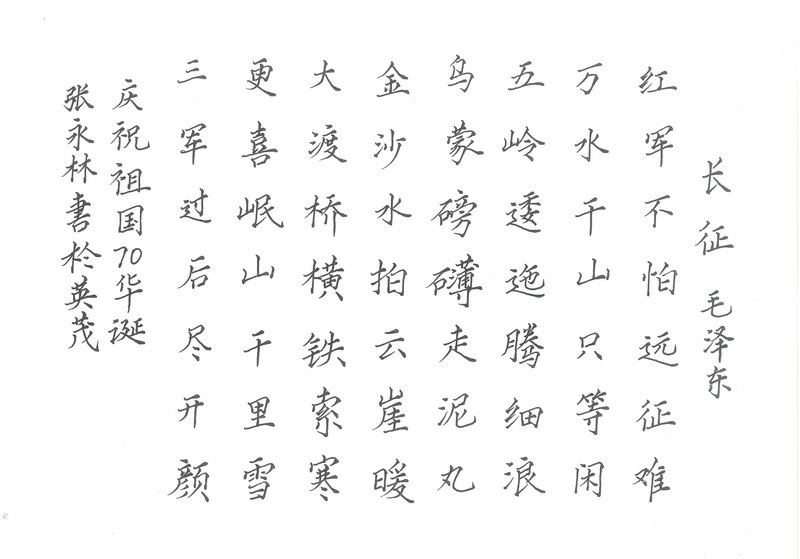 长征 毛泽东
红军不怕远征难
万水千山只等闲
五岭逶迤腾细浪
乌蒙磅礴走泥丸
金沙水拍云崖暖
大渡桥横铁索寒
更喜岷山千里雪
三军过后尽开颜
庆祝祖国70华诞
张永林書於英茂